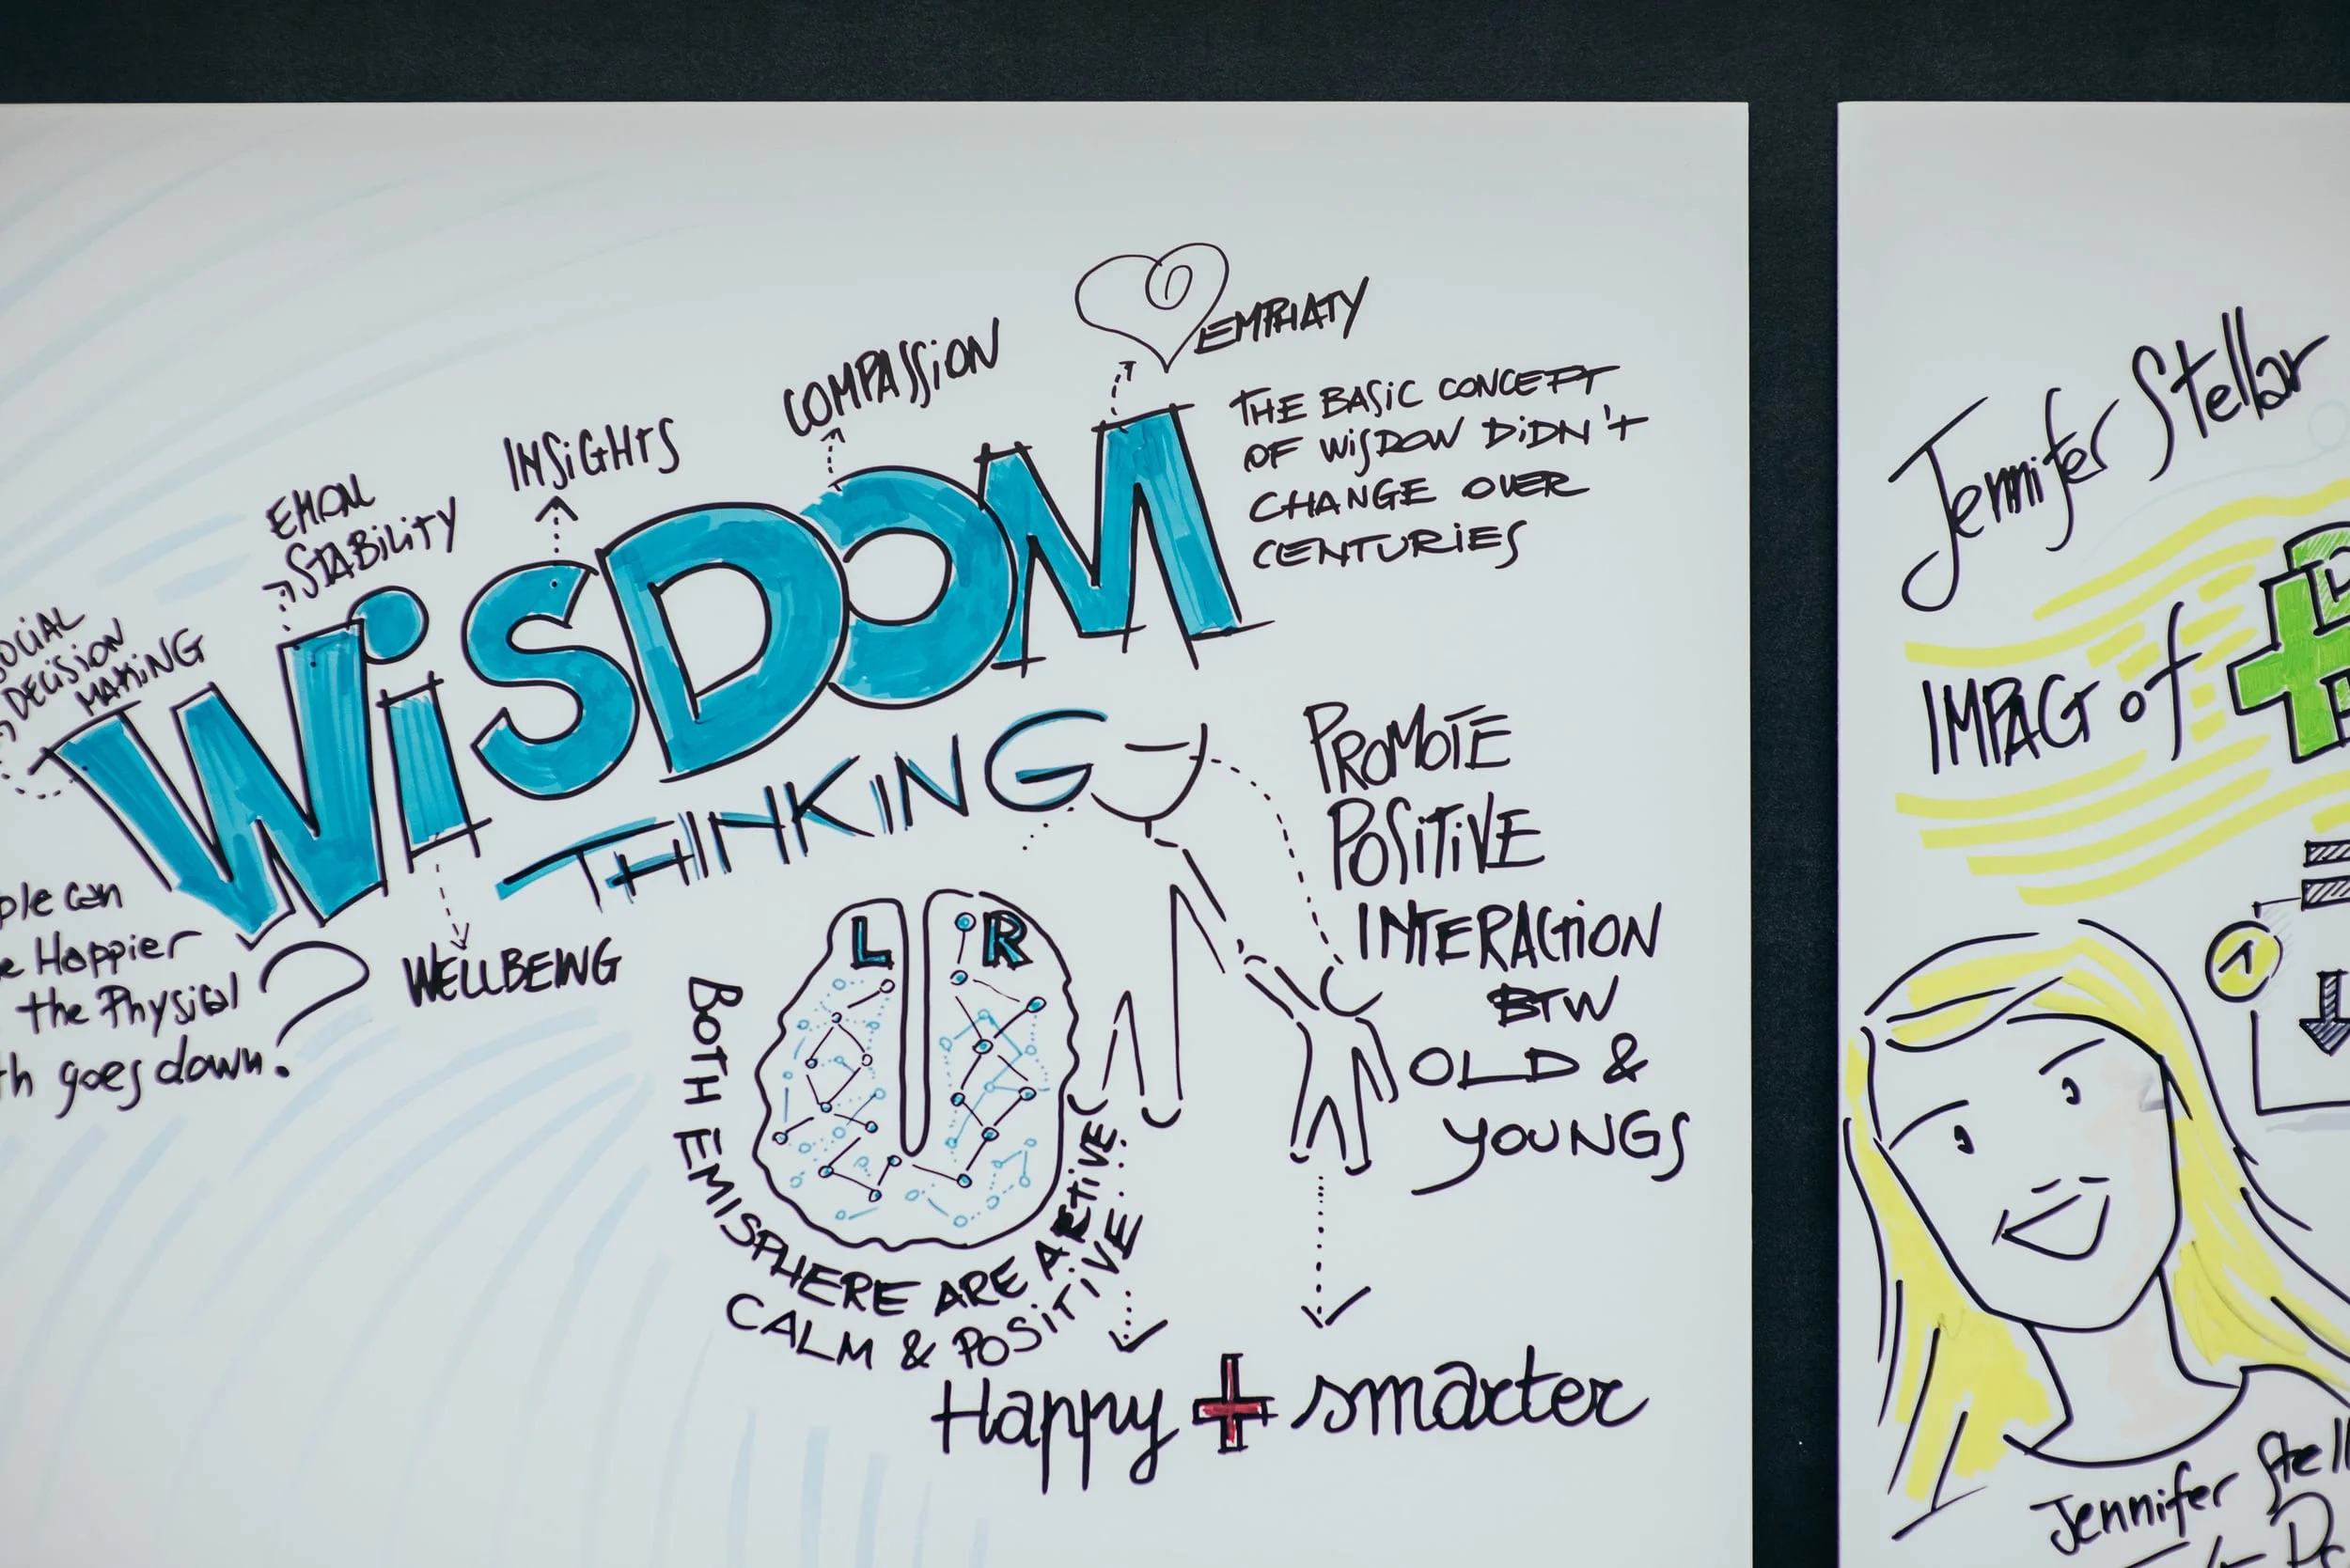 EMPHATY
COMPASSION
INSiGHTS
EMON
STABiLiTY
DECiSiON
MAKiNG
WiSDOM
THINKING
THE BASiC CONCEPT
OF WiSDOW DiDN't
CHANGE OVER
CENTURiES
can
Happier
the Physical
goes down?
WELLBEING
L R
BOTH EMISPHERE ARE ACTIVE
CALM & POSiTiVE
PROMOTE
POSiTiVE
INTERACTiON
BTW
OLD &
YOUNGS
Happy + smarter
Jennifer Stellar
IMPACT of
1
Jennifer